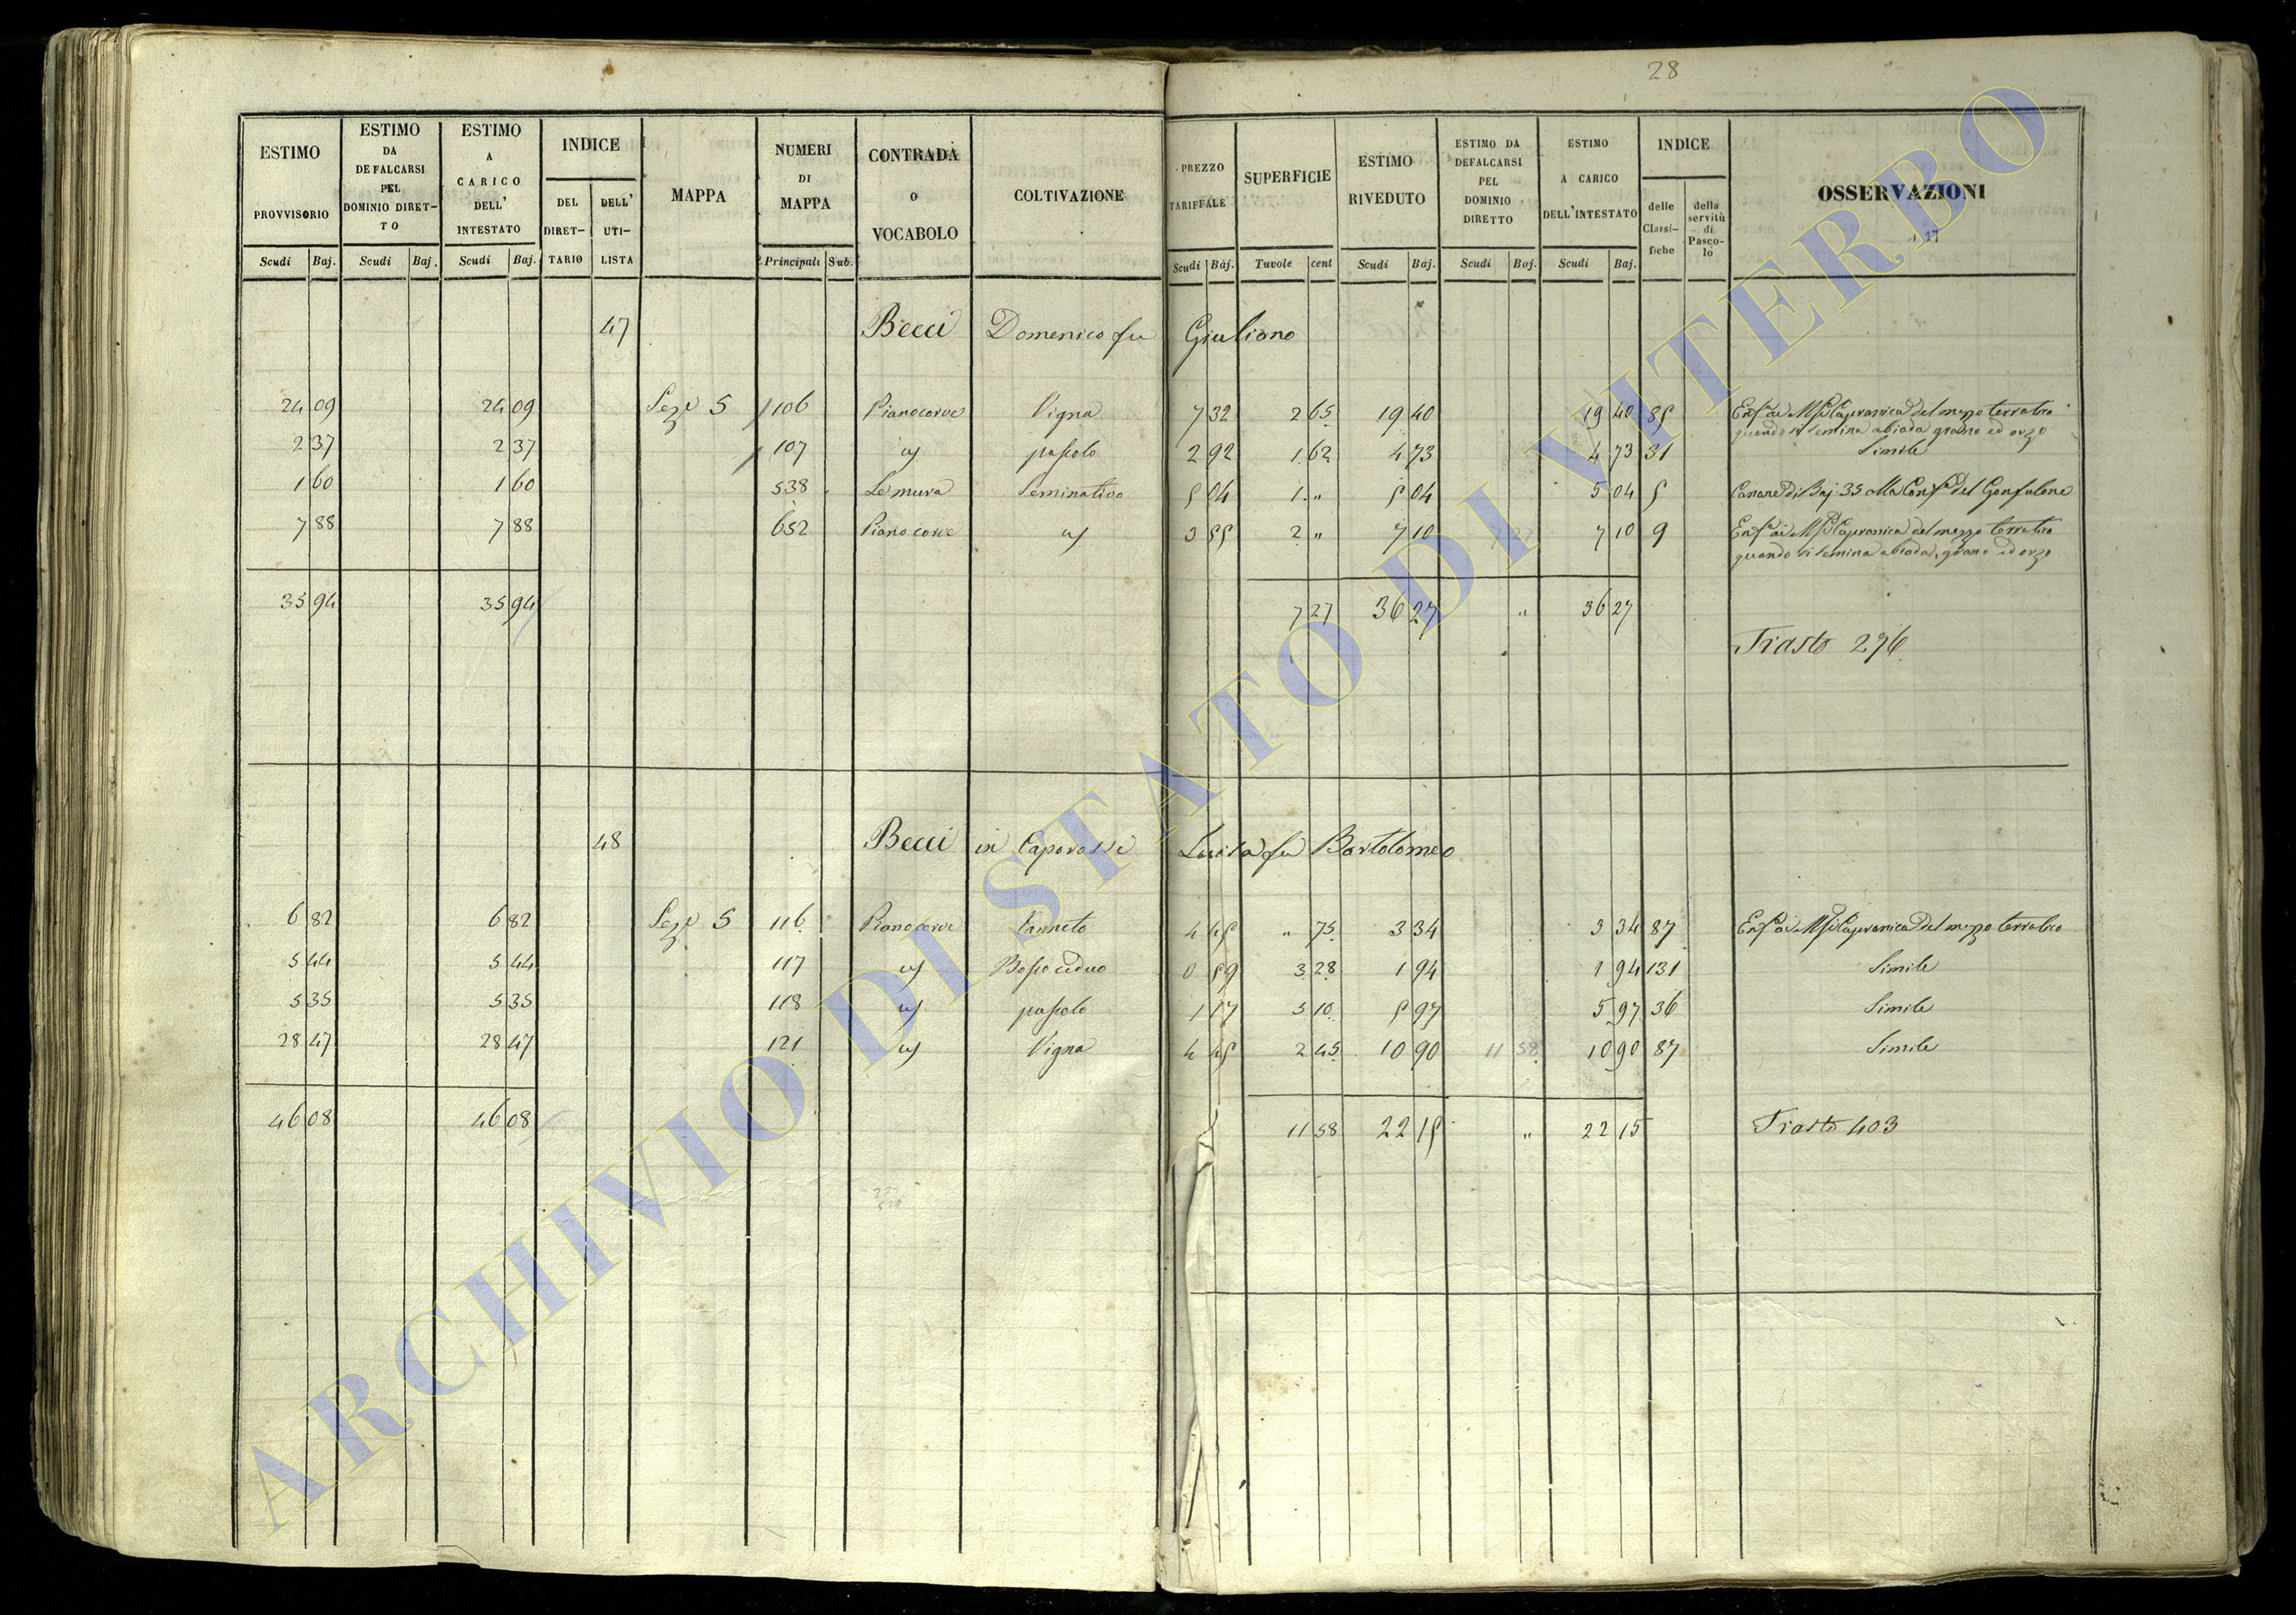 28
ESTIMO PROVVISORIO Scudi Baj.
ESTIMO DA DEFALCARSI PEL DOMINIO DIRETTO Scudi Baj.
ESTIMO A CARICO DELL' INTESTATO Scudi Baj.
INDICE DEL DIRETTARIO DELL' UTILISTA
MAPPA
NUMERI DI MAPPA Principali Sub.
CONTRADA o VOCABOLO
COLTIVAZIONE
PREZZO TARIFFALE Scudi Baj.
SUPERFICIE Tavole cent
ESTIMO RIVEDUTO Scudi Baj.
ESTIMO DA DEFALCARSI PEL DOMINIO DIRETTO Scudi Baj.
ESTIMO A CARICO DELL'INTESTATO Scudi Baj.
INDICE delle Classifiche della servitù di Pascolo
OSSERVAZIONI
47 Becci Domenico fu Giuliano
24 09 24 09 Sez.e 5 106 Pianocorve Vigna 7 32 2 65 19 40 19 40 85 Enf.a ai M.si Capranica del mezzo terratico
quando si semina abiada grano ed orzo
2 37 2 37 107 " pascolo 2 92 1 62 4 73 4 73 31 Simile
1 60 1 60 538 Le mura Seminativo 5 04 1 " 5 04 5 04 5 Canone di Baj: 35 alla Conf.a del Gonfalone
7 88 7 88 652 Piano corve " 3 55 2 " 7 10 7 10 9 Enf.a ai M.si Capranica del mezzo terratico
quando si semina abiada, grano ed orzo
35 94 35 94 7 27 36 27 " 36 27
Trasto 276
48 Becci in Caparossi Luisa fu Bartolomeo
6 82 6 82 Sez.e 5 116 Pianocorve Canneto 4 45 " 75 3 34 3 34 87 Enf.a ai M.si Capranica del mezzo terratico
5 44 5 44 117 " Bosco ceduo 0 59 3 28 1 94 1 94 131 Simile
5 35 5 35 118 " pascolo 1 17 5 10 5 97 5 97 36 Simile
28 47 28 47 121 " Vigna 4 45 2 45 10 90 11 58 10 90 87 Simile
46 08 46 08 11 58 22 15 " 22 15 Trasto 403
ARCHIVIO DI STATO DI VITERBO